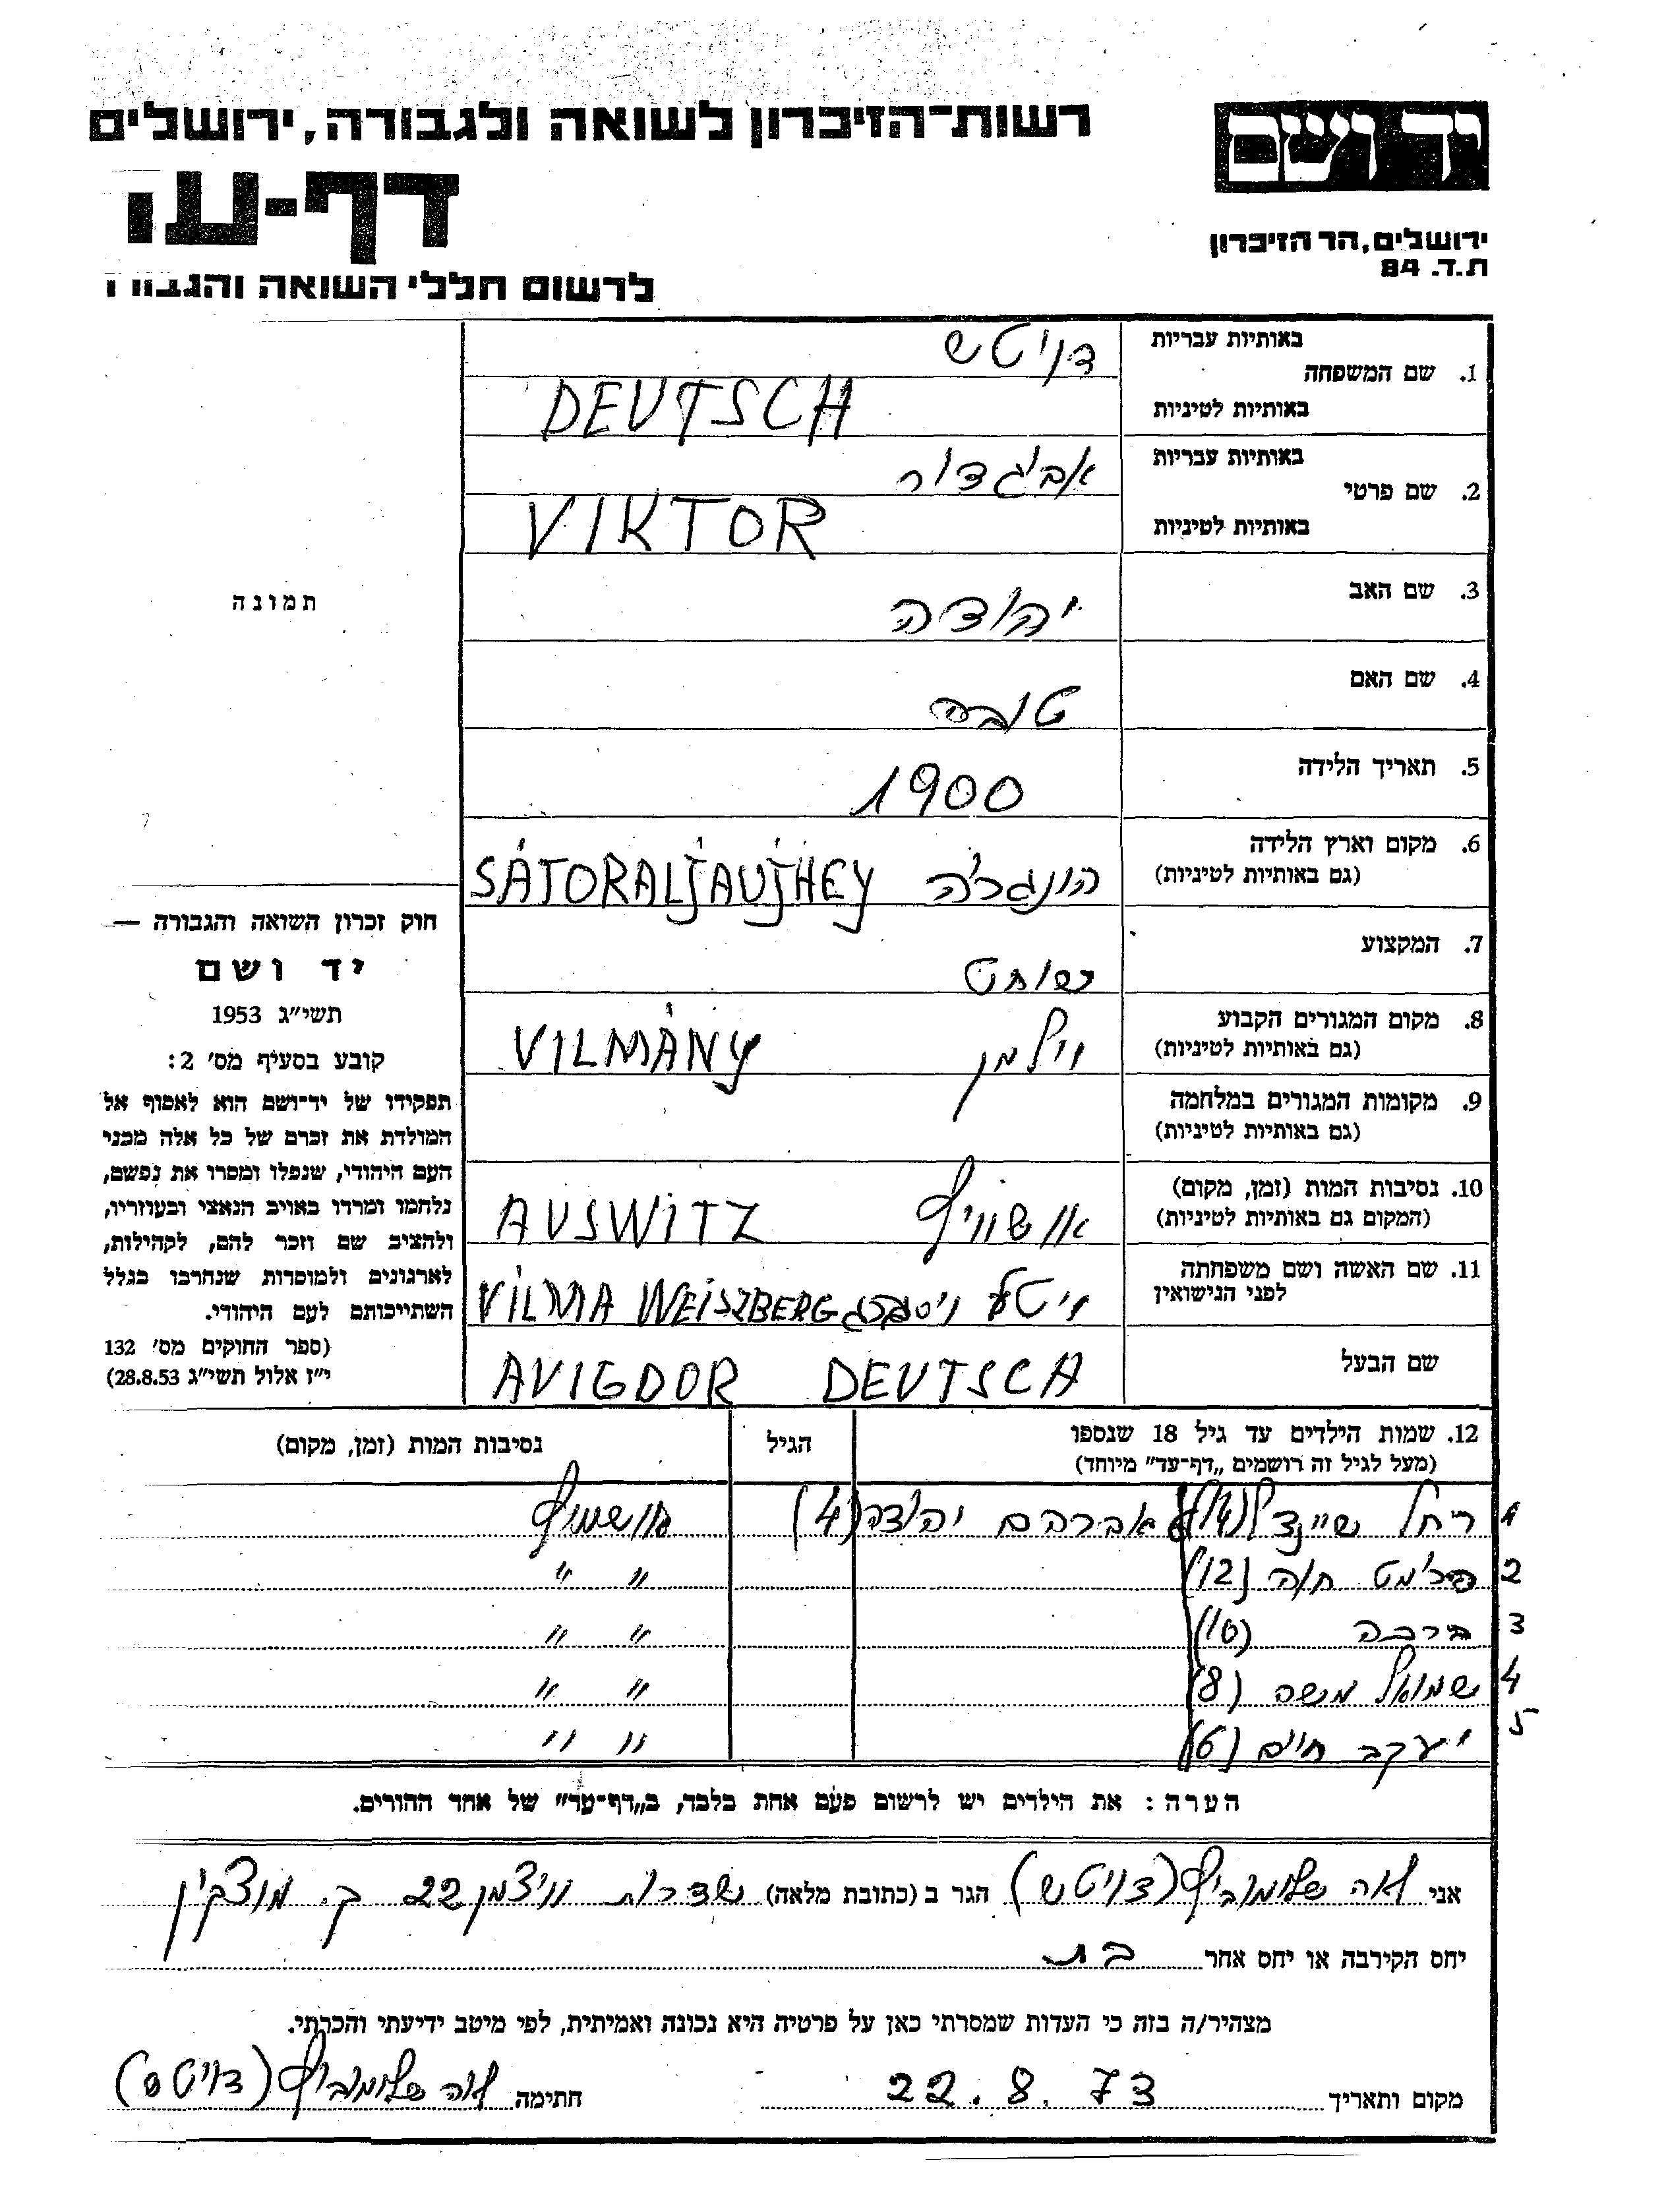 יד ושם
רשות-הזיכרון לשואה ולגבורה, ירושלים
דף-ע
ירושלים, הר הזיכרון
ת.ד. 84
לרשום חללי השואה והגב
באותיות עבריות
דויטש
1. שם המשפחה
באותיות לטיניות
DEUTSCH
באותיות עבריות
אביגדור
2. שם פרטי
באותיות לטיניות
VIKTOR
3. שם האב
יהודה
4. שם האם
טובה
5. תאריך הלידה
1900
6. מקום וארץ הלידה
(גם באותיות לטיניות)
הונגריה SÁTORALJAUJHEY
7. המקצוע
שוחט
8. מקום המגורים הקבוע
(גם באותיות לטיניות)
וילמן VILMÁNY
9. מקומות המגורים במלחמה
(גם באותיות לטיניות)
10. נסיבות המות (זמן, מקום)
(המקום גם באותיות לטיניות)
אושוויץ AUSWITZ
11. שם האשה ושם משפחתה
לפני הנישואין
ויסברג VILMA WEISZBERG
שם הבעל
AVIGDOR DEUTSCH
תמונה
חוק זכרון השואה והגבורה —
יד ושם
תשי״ג 1953
קובע בסעיף מס׳ 2:
תפקידו של יד־ושם הוא לאסוף אל
המולדת את זכרם של כל אלה מבני
העם היהודי, שנפלו ומסרו את נפשם,
נלחמו ומרדו באויב הנאצי ובעוזריו,
ולהציב שם וזכר להם, לקהילות,
לארגונים ולמוסדות שנחרבו בגלל
השתייכותם לעם היהודי.
(ספר החוקים מס׳ 132
י״ז אלול תשי״ג 28.8.53)
12. שמות הילדים עד גיל 18 שנספו
(מעל לגיל זה רושמים „דף-עד״ מיוחד)
הגיל
נסיבות המות (זמן, מקום)
1 רחל שיינדל (14) אברהם יהודה (4) אושויץ
2 פרומט חוה (12) " "
3 ברכה (10) " "
4 שמואל משה (8) " "
5 יעקב חיים (6) " "
הערה: את הילדים יש לרשום פעם אחת בלבד, ב„דף-עד״ של אחד ההורים.
אני לאה שלומוביץ (דויטש) הגר ב (כתובת מלאה) שדרות וויצמן 22 ק. מוצקין
יחס הקירבה או יחס אחר בת
מצהיר/ה בזה כי העדות שמסרתי כאן על פרטיה היא נכונה ואמיתית, לפי מיטב ידיעתי והכרתי.
מקום ותאריך 22.8.73 חתימה לאה שלומוביץ (דויטש)